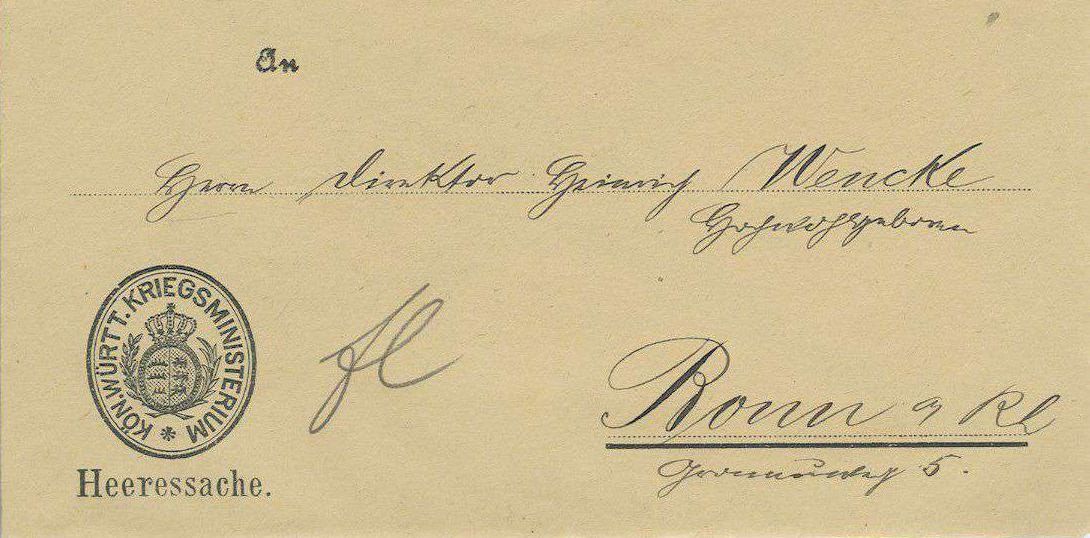 An
Herrn Direktor Heinrich Wencke
Hochwohlgeboren
KÖN. WÜRTT. KRIEGSMINISTERIUM *
Heeressache.
Bonn a Rh
5.